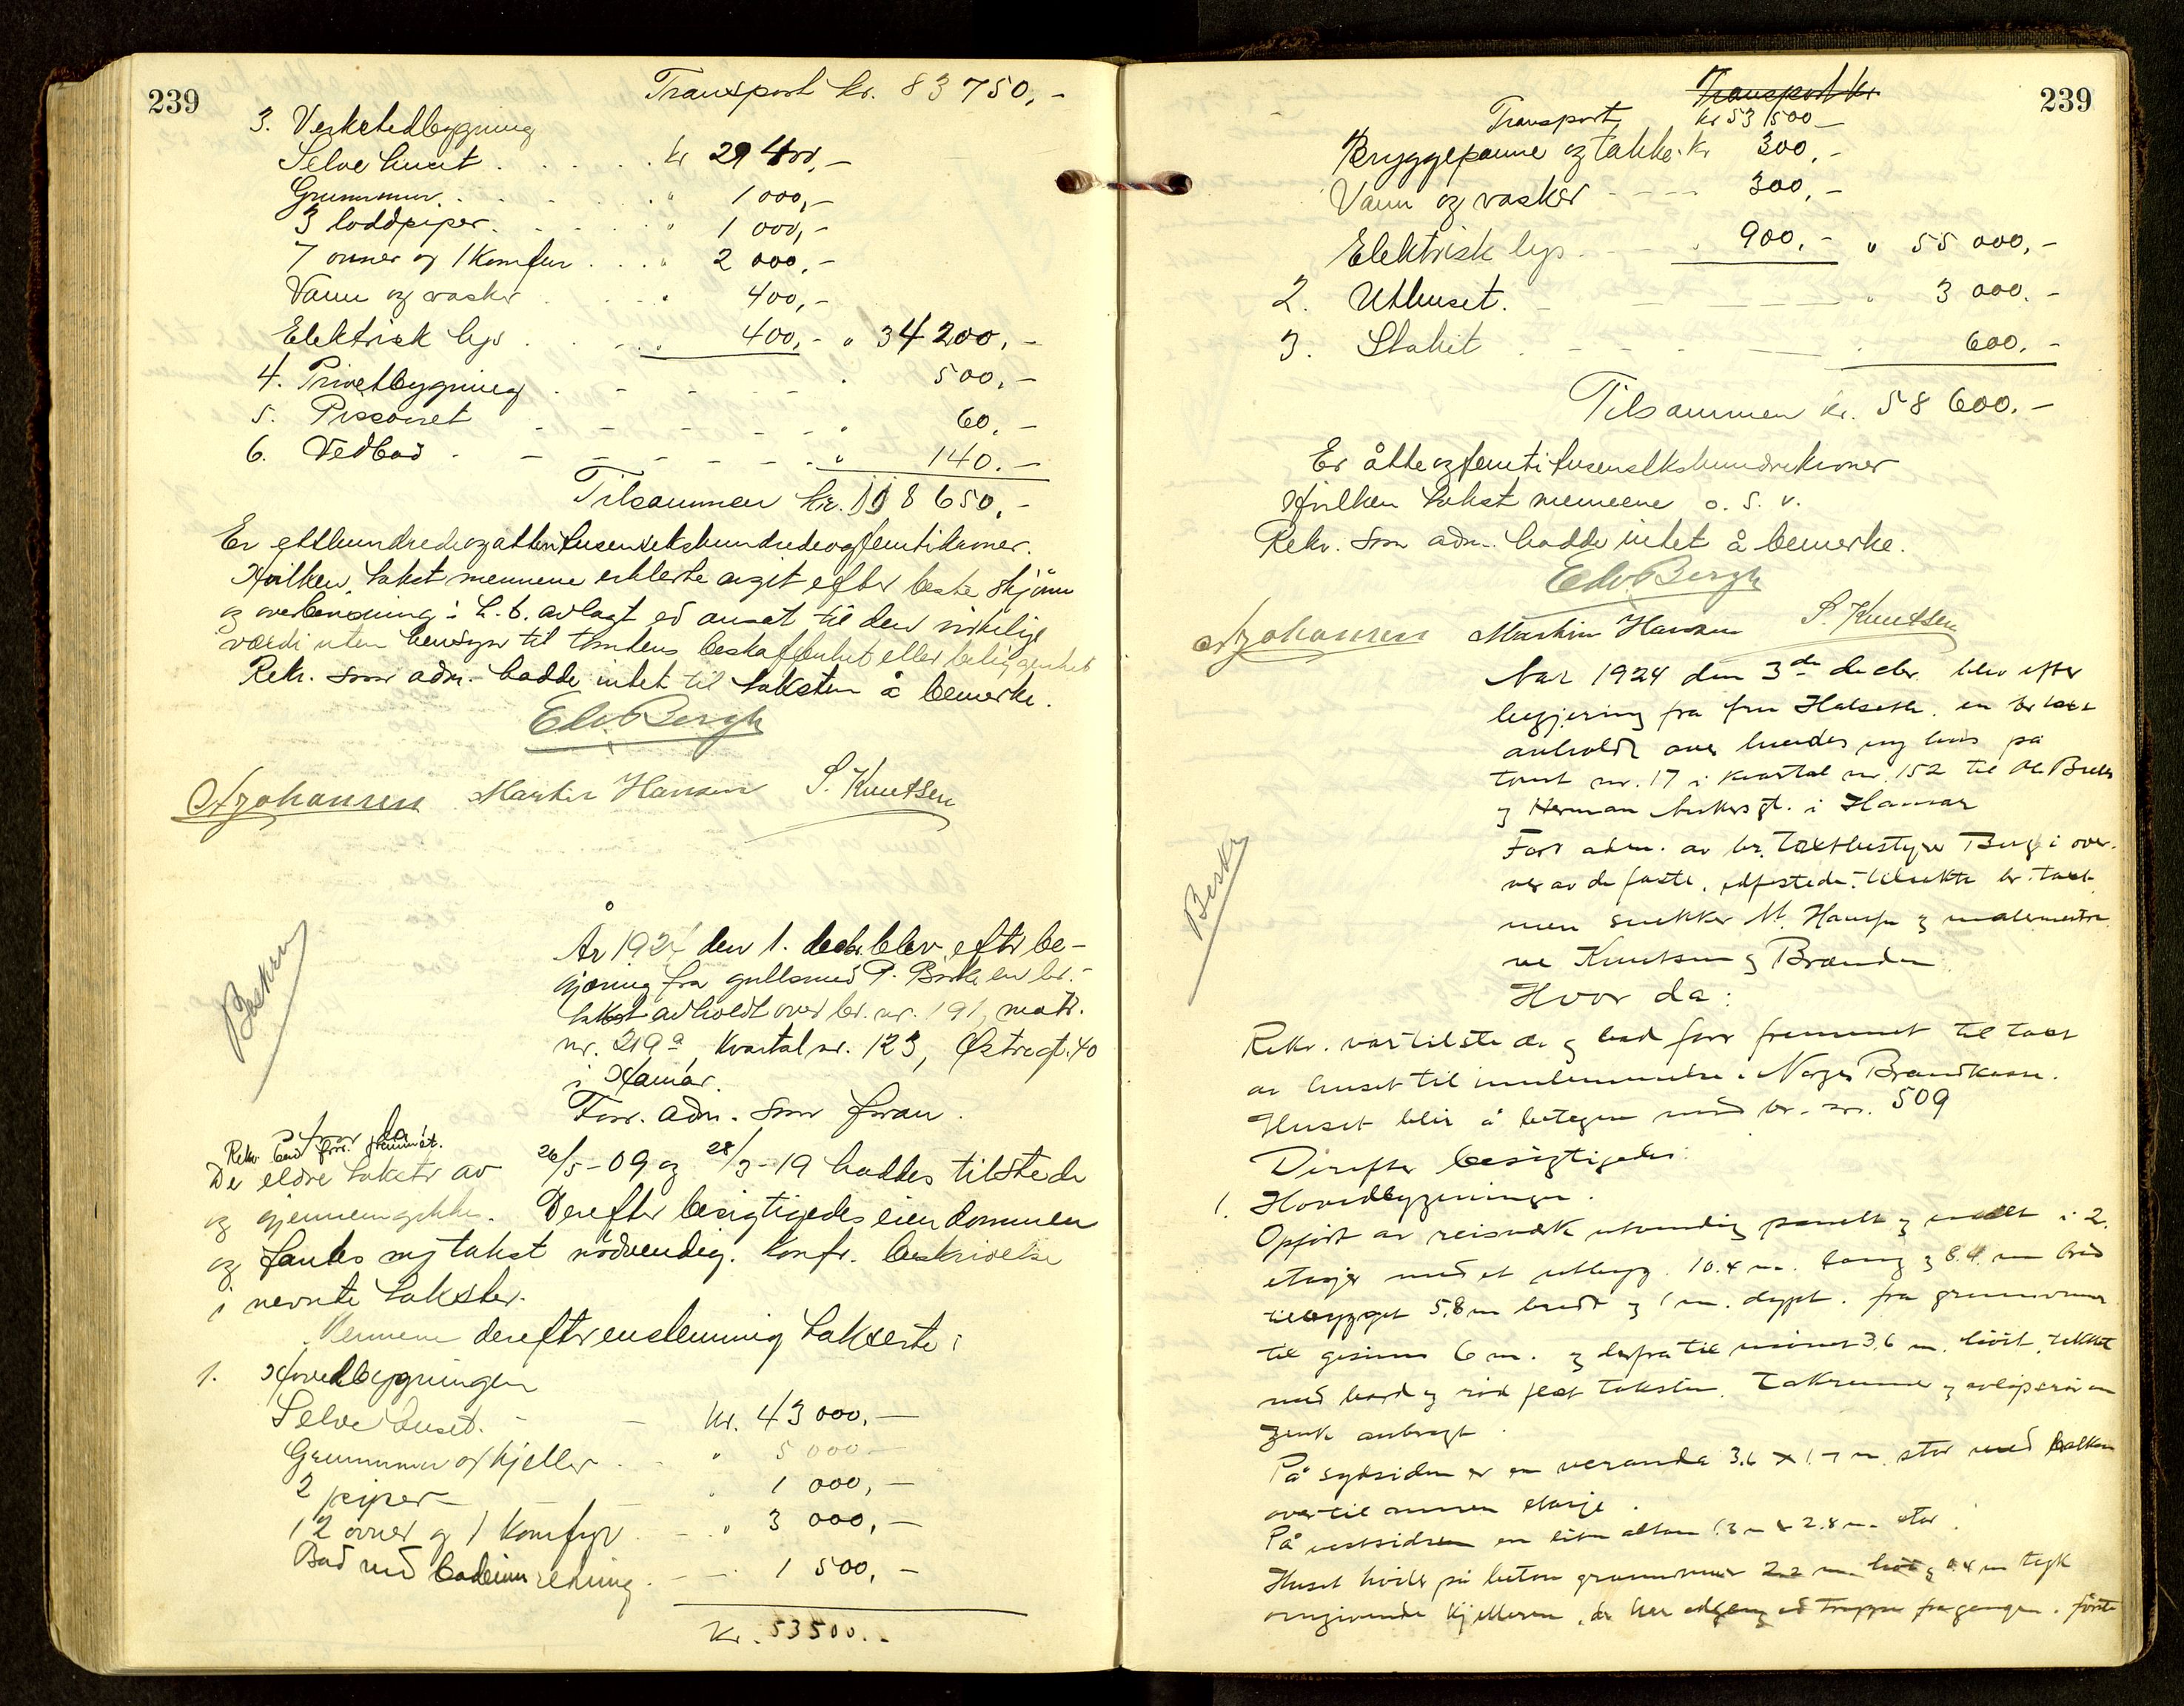 239
Transport kr. 83 750,-
3. Verkstedbygning
Selve huset . . . . . kr 29 400,-
Grunnmur . . . . . " 1 000,-
3 loddpiper . . . . " 1 000,-
7 ovner og 1 komfur . . . " 2 000,-
Vann og vasker . . . . " 400,-
Elektrisk lys . . . " 400,- " 34 200,-
4. Privetbygning . - - - - " 500,-
5. Pissoiret - - - - - - " 60,-
6. Vedbod . - - - - - - " 140.-
Tilsammen kr. 118 650,-
Er etthundredeogattentusensekshundredeogfemtikroner.
Hvilken takst mennene erklerte avgit efter beste skjönn
og overbevisning i h. t. avlagt ed ansat til den virkelige
værdi uten hensyn til tomtens beskaffenhet eller beliggenhet
Rekv. som adm. hadde intet til taksten å bemerke.
Edv. Bergh
A Johansen Martin Hansen S. Knutsen
Beskrev
År 1924 den 1. decbr. blev efter be-
gjæring fra gullsmed P. Borke en br.-
takst avholdt over br. nr. 191, matr.
nr. 219a, Kvartal nr. 123, Østregt. 40
i Hamar.
Forr. adm. som foran.
Hvor da!
Rekv. bad forr. fremmet.
De eldre takster av 26/5-09 og 28/3-19 haddes tilstede
og gjennemgikks. Derefter besigtigedes eiendommen
og fantes ny takst nödvendig. Konfr. beskrivelse
i nevnte takster.
Mennene derefter enstemmig takserte:
1. Hovedbygningen
Selve huset. - - kr. 43 000,-
Grunnmur og kjeller . - " 5 000.-
2 piper - " 1 000,-
12 ovner og 1 Komfyr . - . " 3 000,-
Bad med badeinnredning . - - . 1 500,-
Kr. 53500.-
239
Transport kr
Transport kr 53 500-
Bryggepanne og takke. kr 300,-
Vann og vasker - - - - 300,-
Elektrisk lys - - - " 900.- " 55 000,-
2. Uthuset. - - - - " 3 000.-
3. Stakit . - - - - . 600.-
Tilsammen kr. 58 600.-
Er åtteogfemtitusensekshundrekroner
Hvilken takst mennene o. s. v.
Rekv. som adm. hadde intet å bemerke.
Edv. Bergh
A Johansen Martin Hansen S. Knutsen
Beskr
Aar 1924 den 3de decbr. blev efter
begjæring fra fru Halseth en br takst
avholdt over hendes ny hus på
tomt nr. 17 i kvartal nr. 152 til
og Herman Ankersgt. i Hamar
Forr adm. av br. taxtbestyrer Berg i over-
vær av de faste, edfestede, tilsikte br. taxt
men snekker M. Hansen og malermestre
ne Knutsen og Brenden
Hvor da:
Rekv. var tilstede og bad forr fremmet til taxt
av huset til innlemmelse i Norges Brandkasse.
Huset blir å betegne med br. nr. 509
Derefter besigtigedes:
1. Hovedbygningen.
Opfört av reisverk utvendig panelt og malt i 2.
etasjer med et utbygg. 10.4 m. lang og 8.4 m bred
tilbygget 5.8 m bredt og 1 m. dypt. fra grunnmur
til gesims 6 m. og derfra til mönet 3.6 m. höit, tekket
med bord og röd flat taksten. Takrenne og avlöpsrör av
zink anbragt.
På sydsiden er en veranda 3.6 x 1.7 m. stor med balkon
over til annen etasje.
På vestsiden en liten altan 1.3 m x 2.8 m. stor.
Huset hviler på beton grunnmur 2.2 m. höi og 0.4 m tyk
omgivende kjelleren, der har adgang ad trappe fra gangen i förste